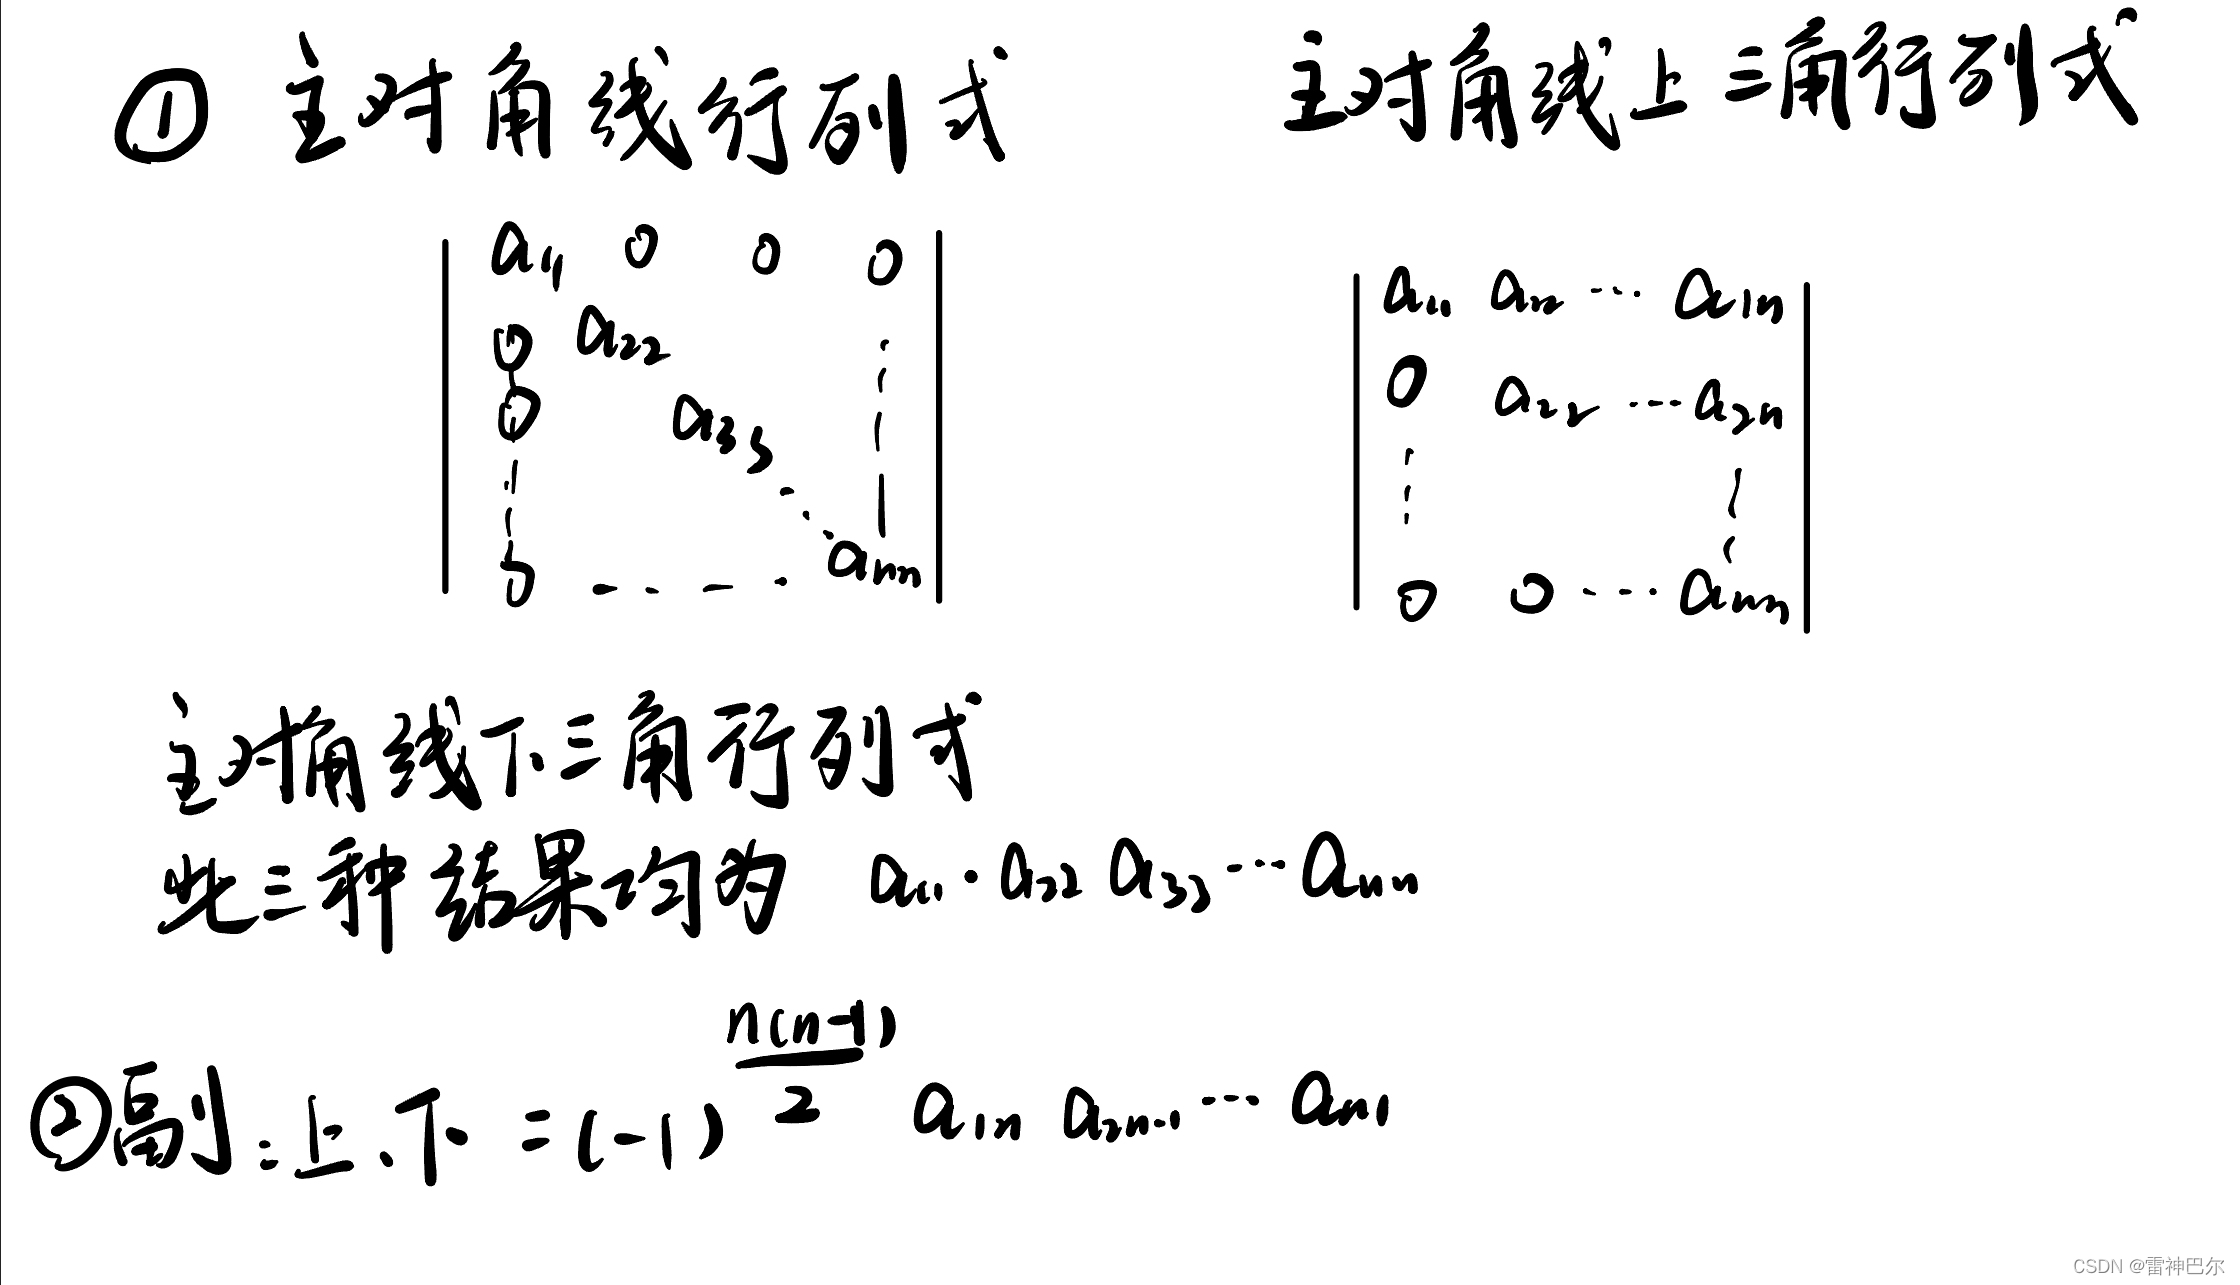 ① 主对角线行列式
a₁₁ 0 0 0
0 a₂₂
0 a₃₃
0 ---- aₙₙ
主对角线上三角行列式
a₁₁ a₁₂ ··· a₁ₙ
0 a₂₂ ··· a₂ₙ
0 0 ··· aₙₙ
主对角线下三角行列式
此三种结果均为 a₁₁·a₂₂ a₃₃ ··· aₙₙ
②副:上、下 =(-1)^{n(n-1)/2} a₁ₙ a₂ₙ₋₁ ··· aₙ₁
CSDN @雷神巴尔